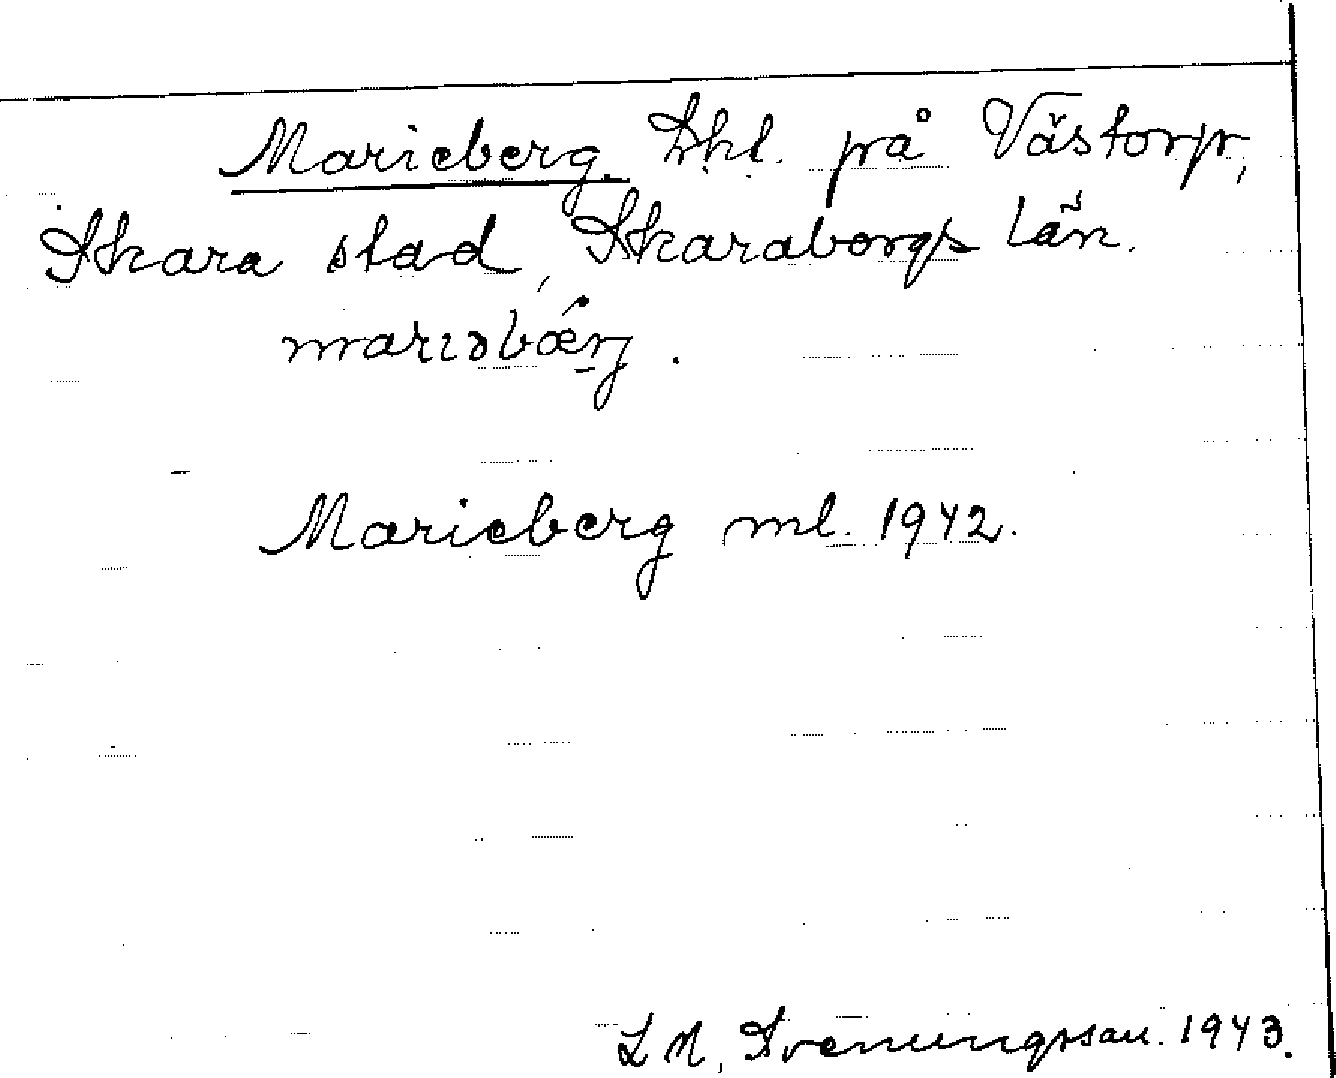 Marieberg. Lhl. på Västorp,
Skara stad, Skaraborgs län.
marıəbǽrj.
Marieberg ml. 1942.
Svenungsson. 1943.